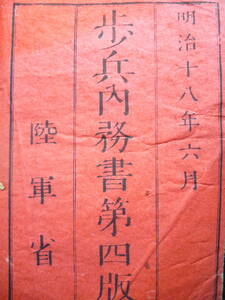 明治十八年六月
歩兵內務書第四版
陸軍省